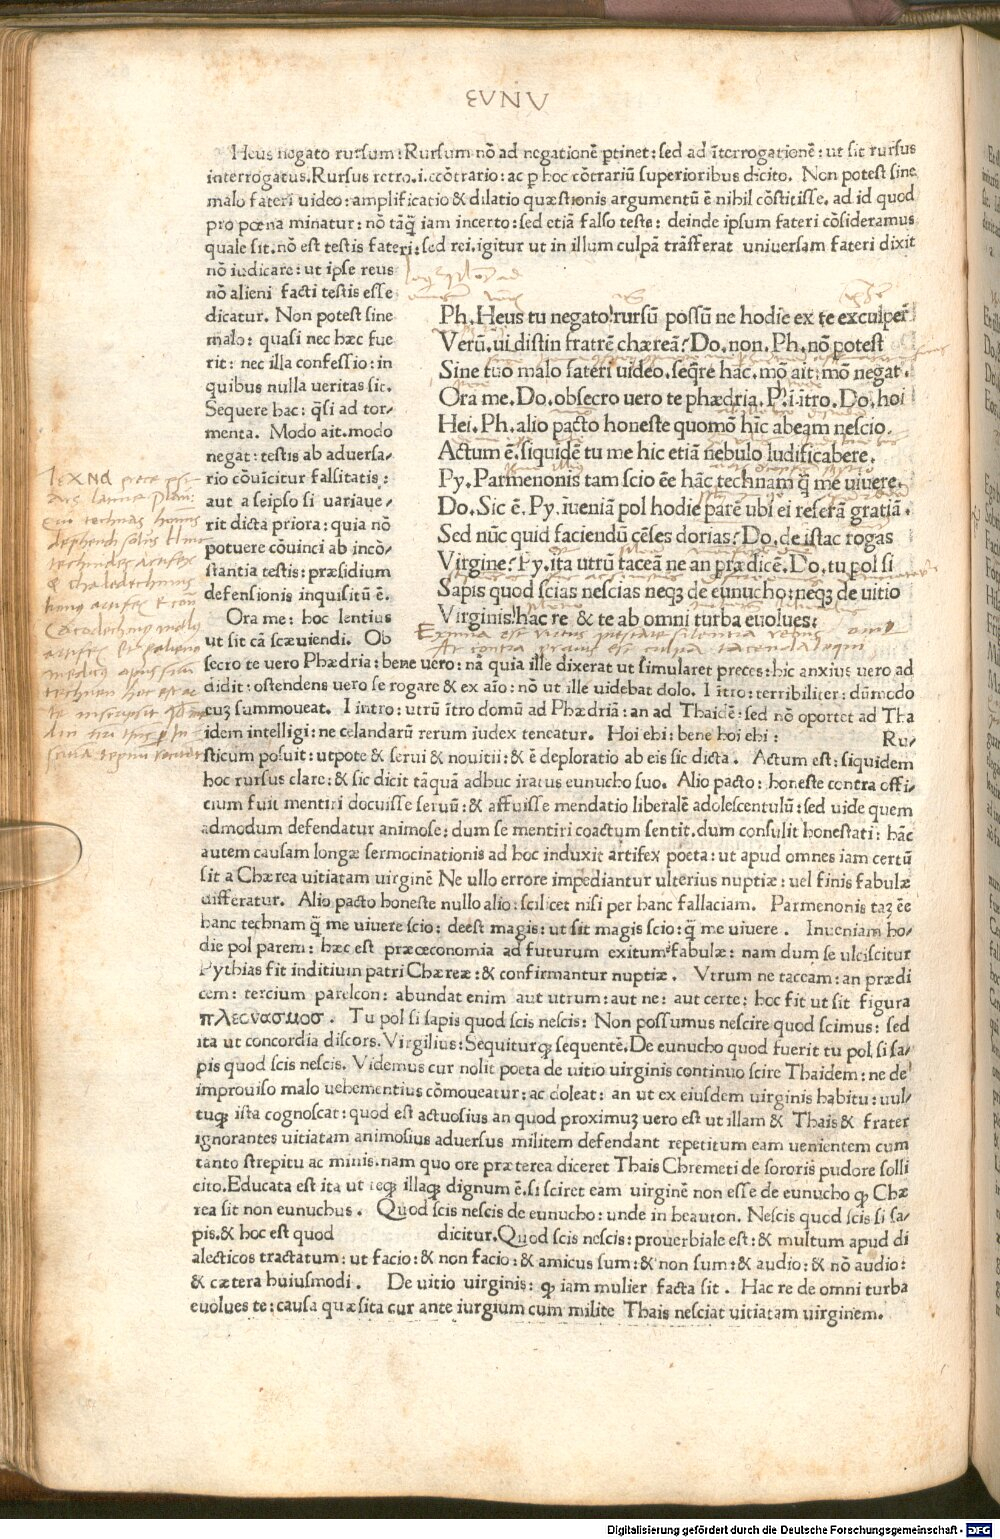 EUNU
Heus negato rursum: Rursum nō ad negationē ꝑtinet: sed ad īterrogationē: ut sit rursus
interrogatus. Rursus retro .i. ecōtrario: ac ꝑ hoc cōtrariū superioribus dicito. Non potest sine
malo fateri uideo: amplificatio & dilatio quæstionis argumentū ē nihil cōstitisse. ad id quod
pro pœna minatur: nō tāq̄ iam incerto: sed etiā falso teste: deinde ipsum fateri cōsideramus
quale sit. nō est testis fateri: sed rei. igitur ut in illum culpā trāsferat uniuersam fateri dixit
nō iudicare: ut ipse reus
nō alieni facti testis esse
dicatur. Non potest sine
malo: quasi nec hæc fue
rit: nec illa confessio: in
quibus nulla ueritas sit.
Sequere hac: q̄si ad tor/
menta. Modo ait. modo
negat: testis ab aduersa/
rio cōuīcitur falsitatis:
aut a seipso si uariaue/
rit dicta priora: quia nō
potuere cōuinci ab incō/
stantia testis: præsidium
defensionis inquisitū ē.
Ora me: hoc lentius
ut sit cā scæuiendi. Ob
Ph. Heus tu negato! rursū possū ne hodie ex te exculper̄
Verū. ui distin fratrē chæreā? Do. non. Ph. nō potest
Sine tuo malo fateri uideo. seq̄re hac. mō ait: mō negat.
Ora me. Do. obsecro uero te phædria. P. i ītro. Do. hoi
Hei. Ph. alio pacto honeste quomō hīc abeam nescio.
Actum ē. siquidē tu me hic etiā nebulo ludificabere.
Py. Parmenonis tam scio ēe hāc technam q̄ me uiuere.
Do. Sic ē. Py. īueniā pol hodie parē ubi ei referā gratiā.
Sed nūc quid faciendū cēses dorias? Do. de istac rogas
Virgine? Py. ita utrū taceā ne an prædicē. Do. tu pol si
Sapis quod scias nescias neqꝫ de eunucho: neqꝫ de uitio
Virginis! hac re & te ab omni turba euolues:
secro te uero Phædria: bene uero: nā quia ille dixerat ut simularet preces: hic anxius uero ad
didit: ostendens uero se rogare & ex aīo: nō ut ille uidebat dolo. I ītro: terribiliter: dūmodo
euꝫ summoueat. I intro: utrū ītro domū ad Phædriā: an ad Thaidē: sed nō oportet ad Tha
idem intelligi: ne celandarū rerum iudex teneatur. Hoi ehi: bene hoi ehi: Ru/
sticum posuit: utpote & serui & nouitii: & ē deploratio ab eis sic dicta. Actum est: siquidem
hoc rursus clare: & sic dicit tāquā adhuc iratus eunucho suo. Alio pacto: honeste contra offi/
cium fuit mentiri docuisse seruū: & affuisse mendatio liberalē adolescentulū: sed uide quem
admodum defendatur animose: dum se mentiri coactum sentit. dum consulit honestati: hāc
autem causam longæ sermocinationis ad hoc induxit artifex poeta: ut apud omnes iam certū
sit a Chærea uitiatam uirginē Ne ullo errore impediantur ulterius nuptiæ: uel finis fabulæ
differatur. Alio pacto honeste nullo alio: scilicet nisi per hanc fallaciam. Parmenonis taꝫ ēe
hanc technam q̄ me uiuere scio: deest magis: ut sit magis scio: q̄ me uiuere. Inueniam ho/
die pol parem: hæc est præœconomia ad futurum exitum fabulæ: nam dum se ulciscitur
Pythias fit inditium patri Chæreæ: & confirmantur nuptiæ. Vtrum ne taceam: an prædi
cem: tercium parelcon: abundat enim aut utrum: aut ne: aut certe: hoc fit ut sit figura
πλεονασμοσ. Tu pol si sapis quod scis nescis: Non possumus nescire quod scimus: sed
ita ut concordia discors. Virgilius: Sequiturqꝫ sequentē. De eunucho quod fuerit tu pol si sa/
pis quod scis nescis. Videmus cur nolit poeta de uitio uirginis continuo scire Thaidem: ne de
improuiso malo uehementius cōmoueatur: ac doleat: an ut ex eiusdem uirginis habitu: uul/
tuqꝫ ista cognoscat: quod est actuosius an quod proximuꝫ uero est ut illam & Thais & frater
ignorantes uitiatam animosius aduersus militem defendant repetitum eam uenientem cum
tanto strepitu ac minis. nam quo ore præterea diceret Thais Chremeti de sororis pudore solli
cito. Educata est ita ut teqꝫ illaqꝫ dignum ē. si sciret eam uirginē non esse de eunucho qꝫ Chæ
rea sit non eunuchus. Quod scis nescis de eunucho: unde in heauton. Nescis quod scis si sa/
pis. & hoc est quod dicitur. Quod scis nescis: prouerbiale est: & multum apud di
alecticos tractatum: ut facio: & non facio: & amicus sum: & non sum: & audio: & nō audio:
& cætera huiusmodi. De uitio uirginis: qꝫ iam mulier facta sit. Hac re de omni turba
euolues te: causa quæsita cur ante iurgium cum milite Thais nesciat uitiatam uirginem.
Digitalisierung gefördert durch die Deutsche Forschungsgemeinschaft - DFG